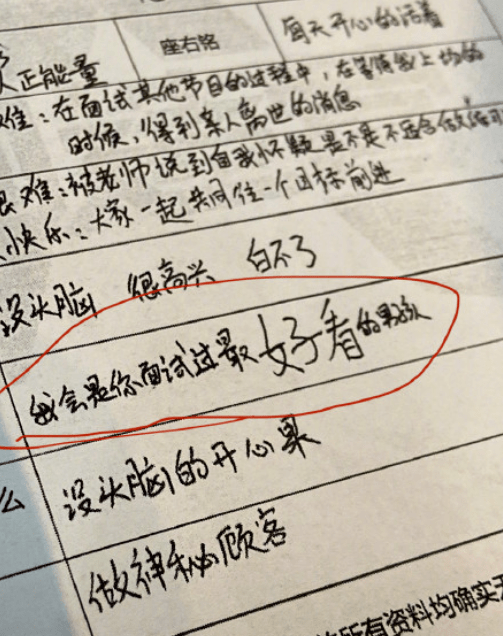 正能量 座右铭 每天开心的活着
难:在面试其他节目的过程中,在等待我上场的
时候,得到亲人离世的消息
很难:被老师说到自我怀疑 是不是不适合做练习
快乐:大家一起共同往一个目标前进
没头脑 很高兴 白不了
我会是你面试过最好看的男孩
么 没头脑的开心果
做神秘顾客
所有资料均确实无